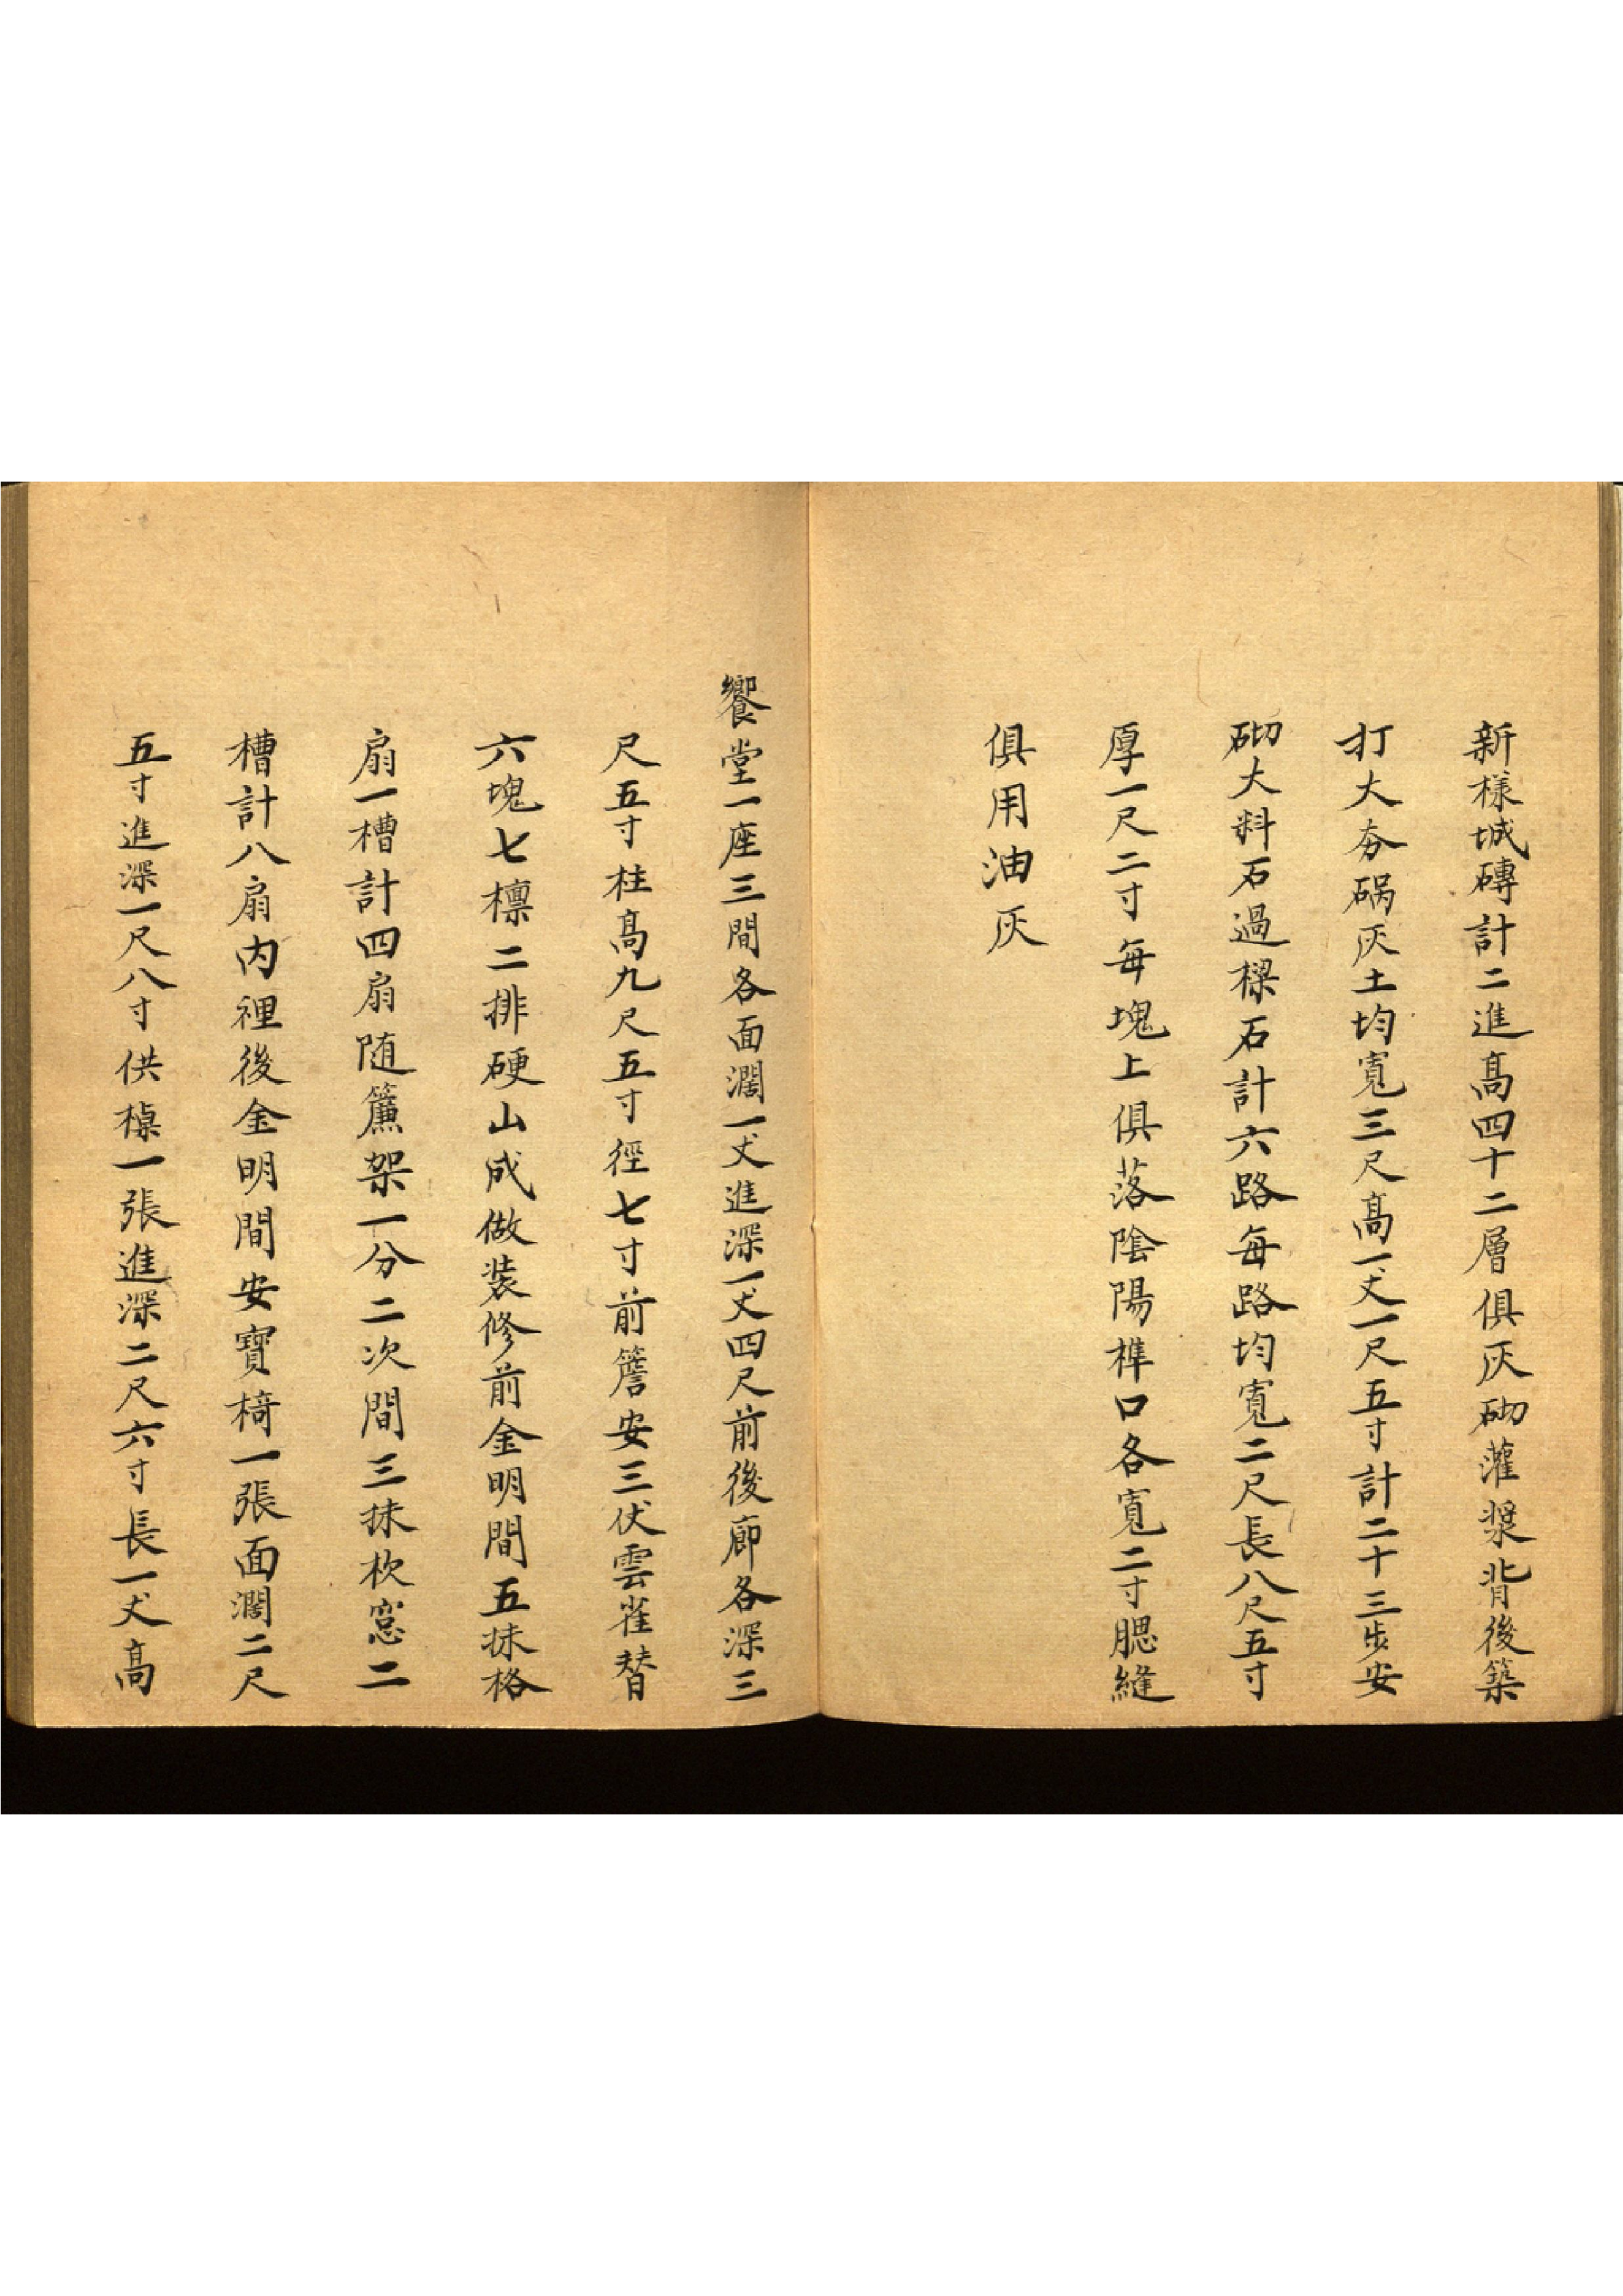 新樣城磚計二進髙四十二層俱灰砌灌漿背後築
打大夯碢灰土均寬三尺髙一丈一尺五寸計二十三步安
砌大料石過樑石計六路每路均寬二尺長八尺五寸
厚一尺二寸每塊上俱落陰陽榫口各寬二寸腮縫
俱用油灰
饗堂一座三間各面濶一丈進深一丈四尺前後廊各深三
尺五寸柱髙九尺五寸徑七寸前簷安三伏雲雀替
六塊七檁二排硬山成做装修前金明間五抹格
扇一槽計四扇随簾架一分二次間三抹杴窓二
槽計八扇内裡後金明間安寶椅一張面濶二尺
五寸進深一尺八寸供槕一張進深二尺六寸長一丈髙